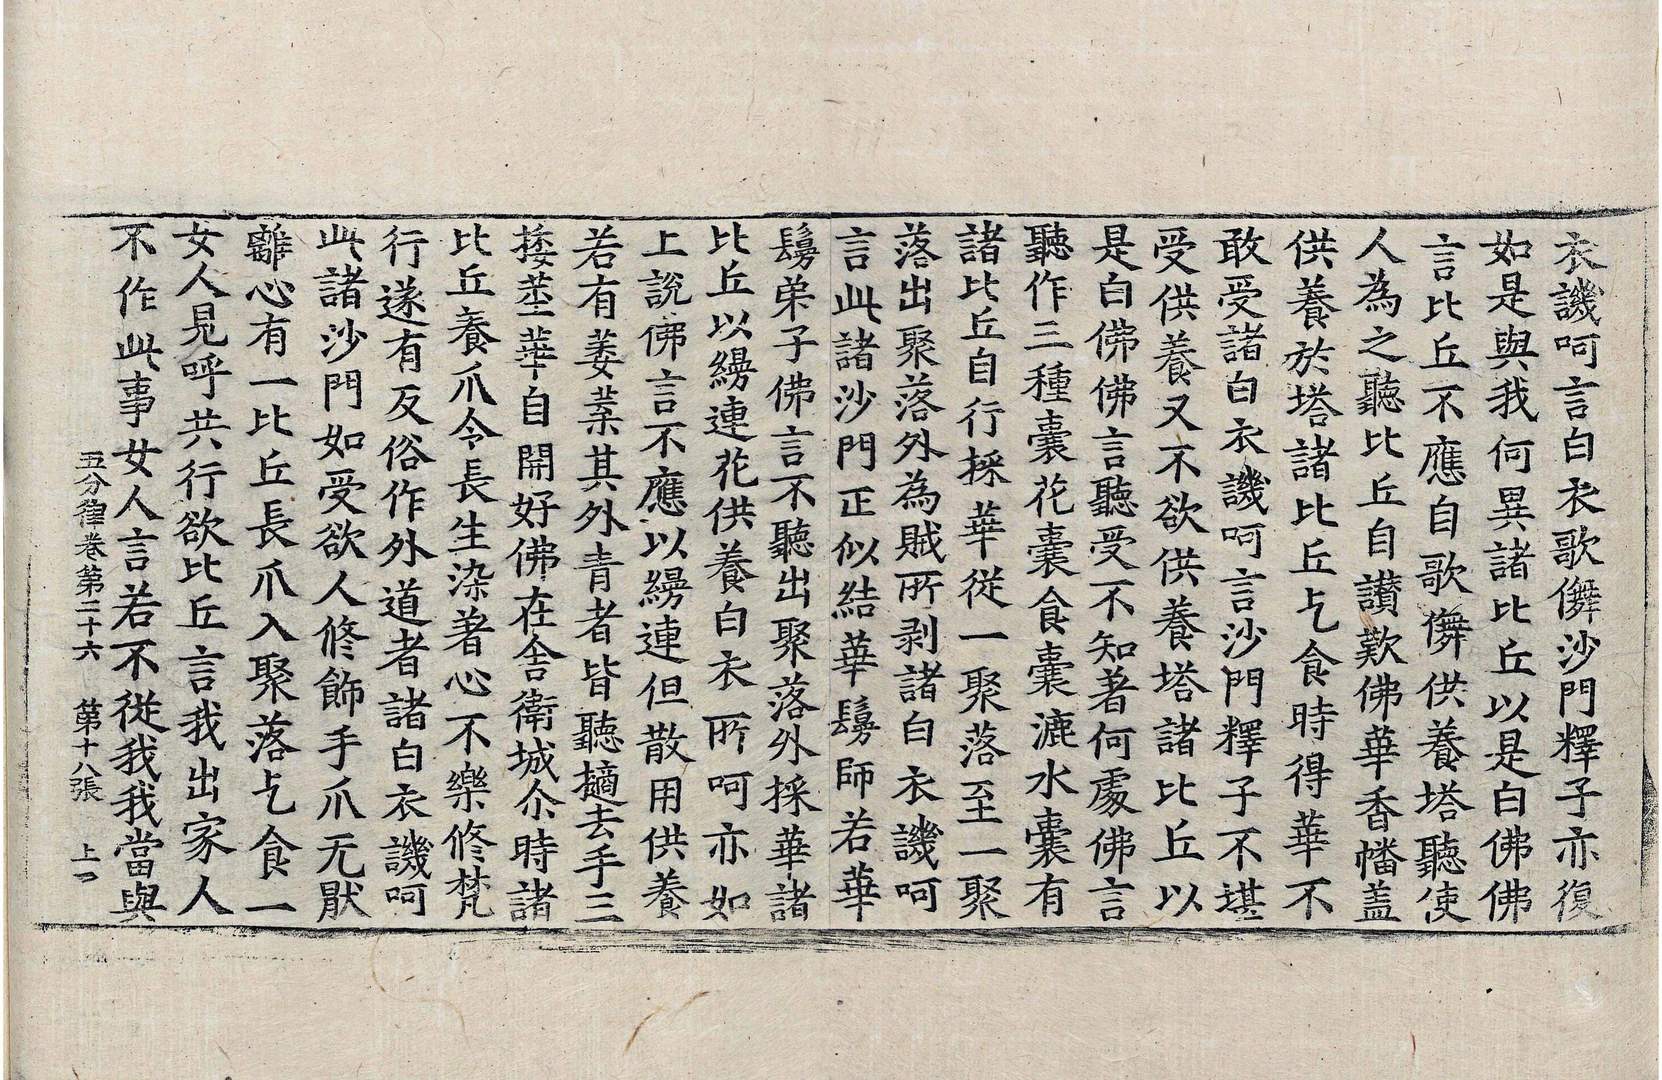 衣譏呵言白衣歌儛沙門釋子亦復
如是與我何異諸比丘以是白佛佛
言比丘不應自歌儛供養塔聽使
人為之聽比丘自讃歎佛華香幡蓋
供養於塔諸比丘乞食時得華不
敢受諸白衣譏呵言沙門釋子不堪
受供養又不欲供養塔諸比丘以
是白佛佛言聽受不知著何處佛言
聽作三種囊花囊食囊漉水囊有
諸比丘自行採華從一聚落至一聚
落出聚落外為賊所剥諸白衣譏呵
言此諸沙門正似結華鬘師若華
鬘弟子佛言不聽出聚落外採華諸
比丘以縷連花供養白衣所呵亦如
上說佛言不應以縷連但散用供養
若有萎葉其外青者皆聽擿去手三
捼莖華自開好佛在舍衛城尒時諸
比丘養爪令長生染著心不樂修梵
行遂有反俗作外道者諸白衣譏呵
此諸沙門如受欲人修飾手爪无厭
離心有一比丘長爪入聚落乞食一
女人見呼共行欲比丘言我出家人
不作此事女人言若不從我我當與
五分律卷第二十六　第十八張　上